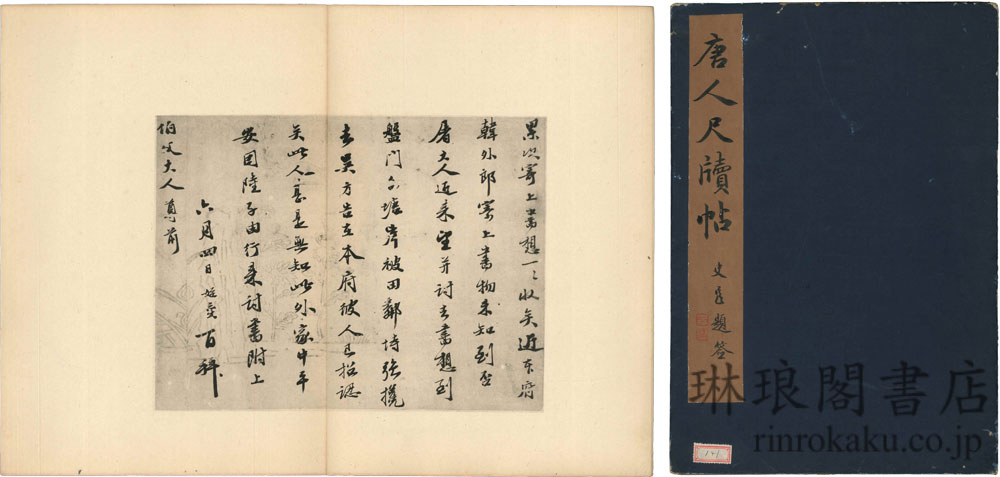 累次寄上書想一一收矣近本府
韓外郎寄上書物未知到否
屠大人近來望并討去書想到
盤門外塘岸被田鄰恃強攙
去吳方告在本府彼人已招認
矣此人甚是無知此外家中平
安因陸子由行來討書附上
六月四日姪 百拜
伯父大人尊前
唐人尺牘帖
題簽
琳琅閣書店
rinrokaku.co.jp